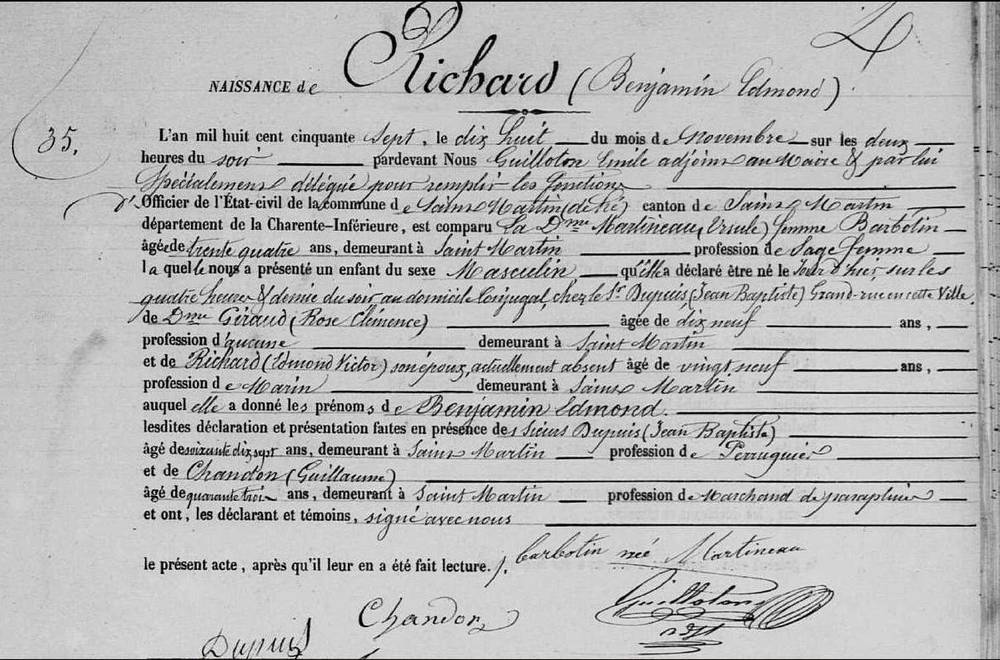 NAISSANCE de Richard (Benjamin Edmond)
35.
L'an mil huit cent cinquante sept, le dix huit du mois de Novembre sur les deux
heures du soir pardevant Nous Guilloton Emile adjoint au Maire & par lui
Spécialement délégué pour remplir les fonctions
d'Officier de l'État-civil de la commune de Saint Martin (de Ré) canton de Saint Martin
département de la Charente-Inférieure, est comparu La Dme Martineau, Ursule) femme Barbotin
âgée de trente quatre ans, demeurant à Saint Martin profession de Sage femme
laquelle nous a présenté un enfant du sexe Masculin, qu'elle a déclaré être né le Jour d'hier, sur les
quatre heures & demie du soir, au domicile Conjugal, chez le Sr Dupuis, (Jean Baptiste) Grand-rue en cette Ville.
de Dme Giraud (Rose Clémence) âgée de dix neuf ans,
profession d'aucune demeurant à Saint Martin
et de Richard (Edmond Victor) son époux, actuellement absent âgé de vingt neuf ans,
profession de Marin demeurant à Saint Martin
auquel elle a donné les prénoms de Benjamin Edmond.
lesdites déclaration et présentation faites en présence des Sieurs Dupuis (Jean Baptiste)
âgé de soixante dix sept ans, demeurant à Saint Martin profession de Perruquier
et de Chandon (Guillaume)
âgé de quarante trois ans, demeurant à Saint Martin profession de Marchand de parapluies
et ont, les déclarant et témoins, signé avec nous
le présent acte, après qu'il leur en a été fait lecture. /. barbotin née Martineau
Guilloton
Chandon
Dupuis